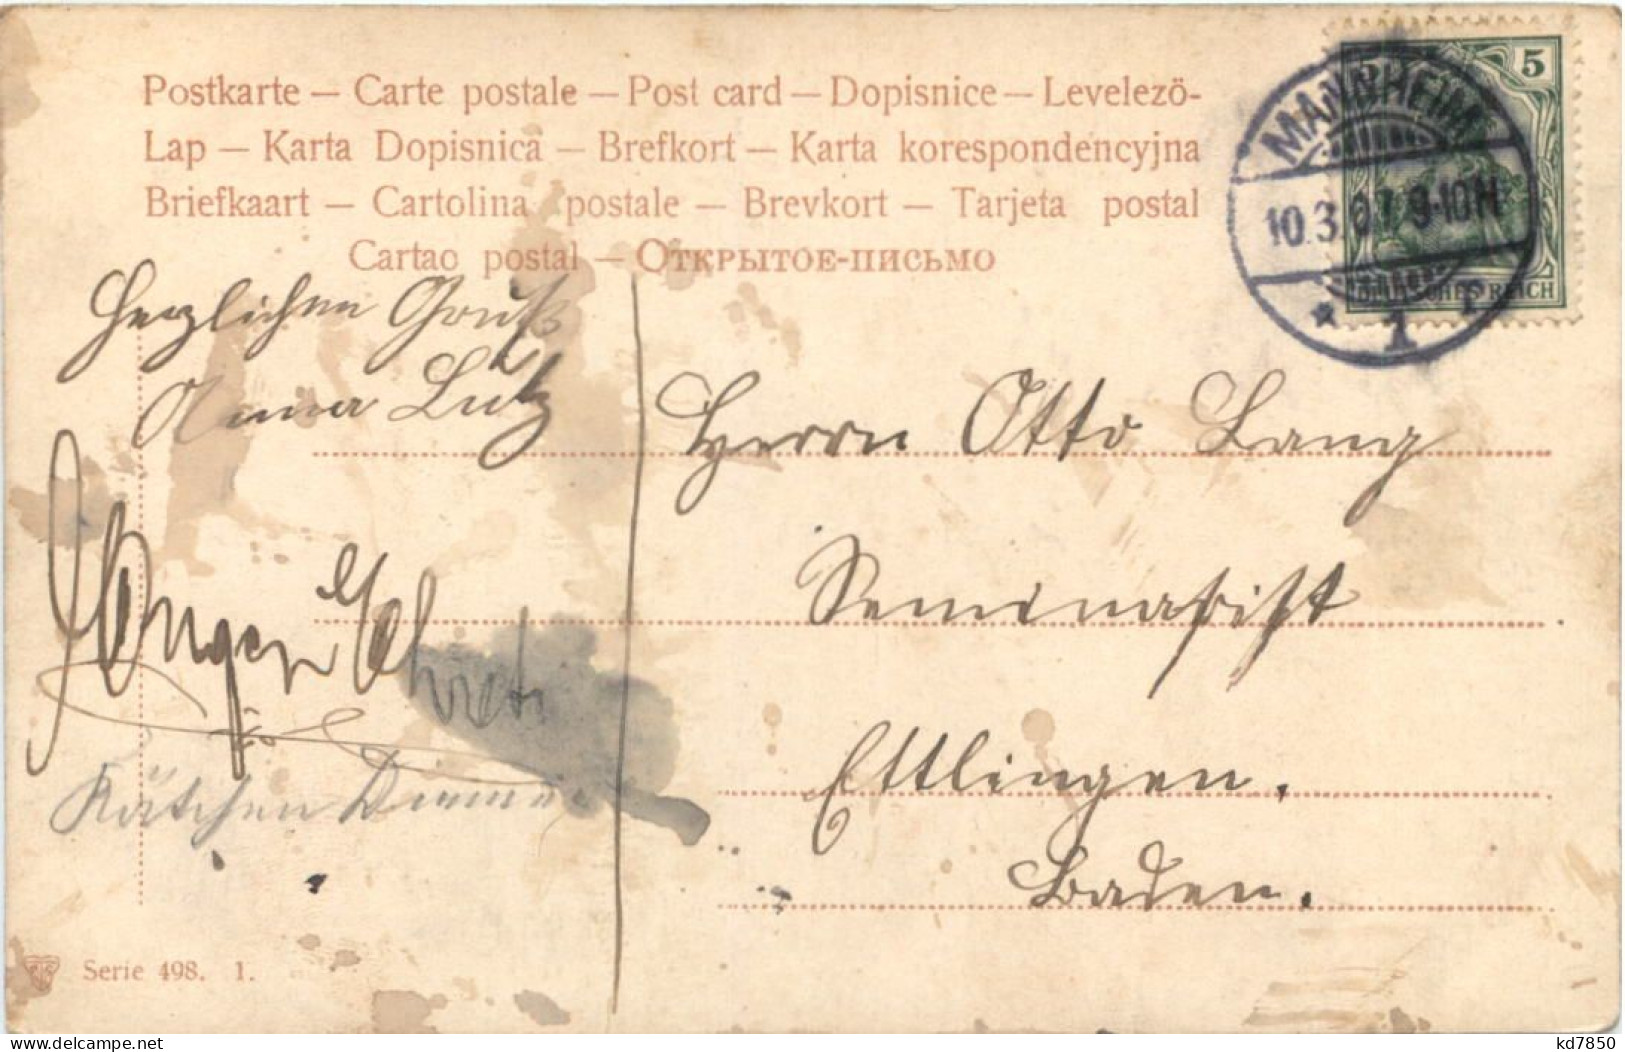 Postkarte — Carte postale — Post card — Dopisnice — Levelezö-
Lap — Karta Dopisnica — Brefkort — Karta korespondencyjna
Briefkaart — Cartolina postale — Brevkort — Tarjeta postal
Cartao postal — Открытое-письмо
5
MANNHEIM
10.3.07 9-10N
* 1
DEUTSCHES REICH
Herzlichen Gruß
Anna Lutz
Kätchen
Herrn Otto Lang
Seminarist
Ettlingen.
Baden.
Serie 498. 1.
delcampe.net
kd7850